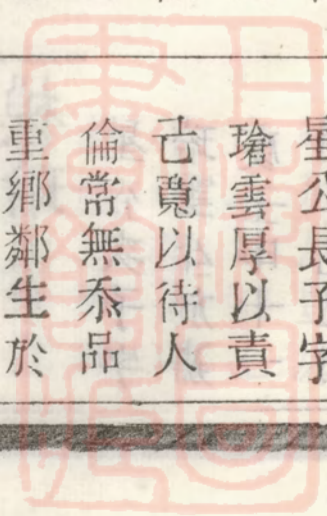 星公長子字
瑲雲厚以責
己寬以待人
倫常無忝品
重鄉鄰生於